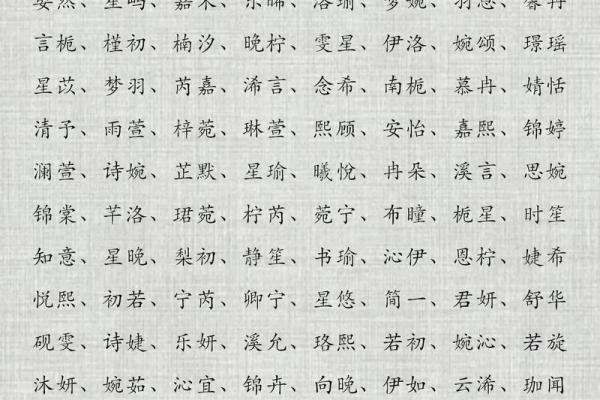 言栀、槿初、楠汐、晚柠、雯星、伊洛、婉颂、璟瑶
星苡、梦羽、芮嘉、浠言、念希、南栀、慕冉、婧恬
清予、雨萱、梓菀、琳萱、熙顾、安怡、嘉熙、锦婷
澜萱、诗婉、芷默、星瑜、曦悦、冉朵、溪言、思婉
锦棠、芊洛、珺菀、柠芮、菀宁、布瞳、栀星、时笙
知意、星晚、梨初、静笙、书瑜、沁伊、恩柠、婕希
悦熙、初若、宁芮、卿宁、星悠、简一、君妍、舒华
砚雯、诗婕、乐妍、溪允、珞熙、若初、婉沁、若旋
沐妍、婉茹、沁宜、锦卉、向晚、伊如、云浠、珈闻